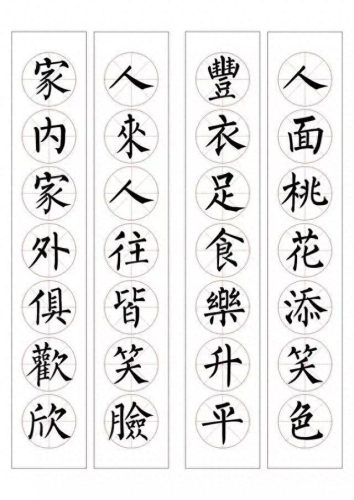 人面桃花添笑色
豐衣足食樂升平
人來人往皆笑臉
家內家外俱歡欣